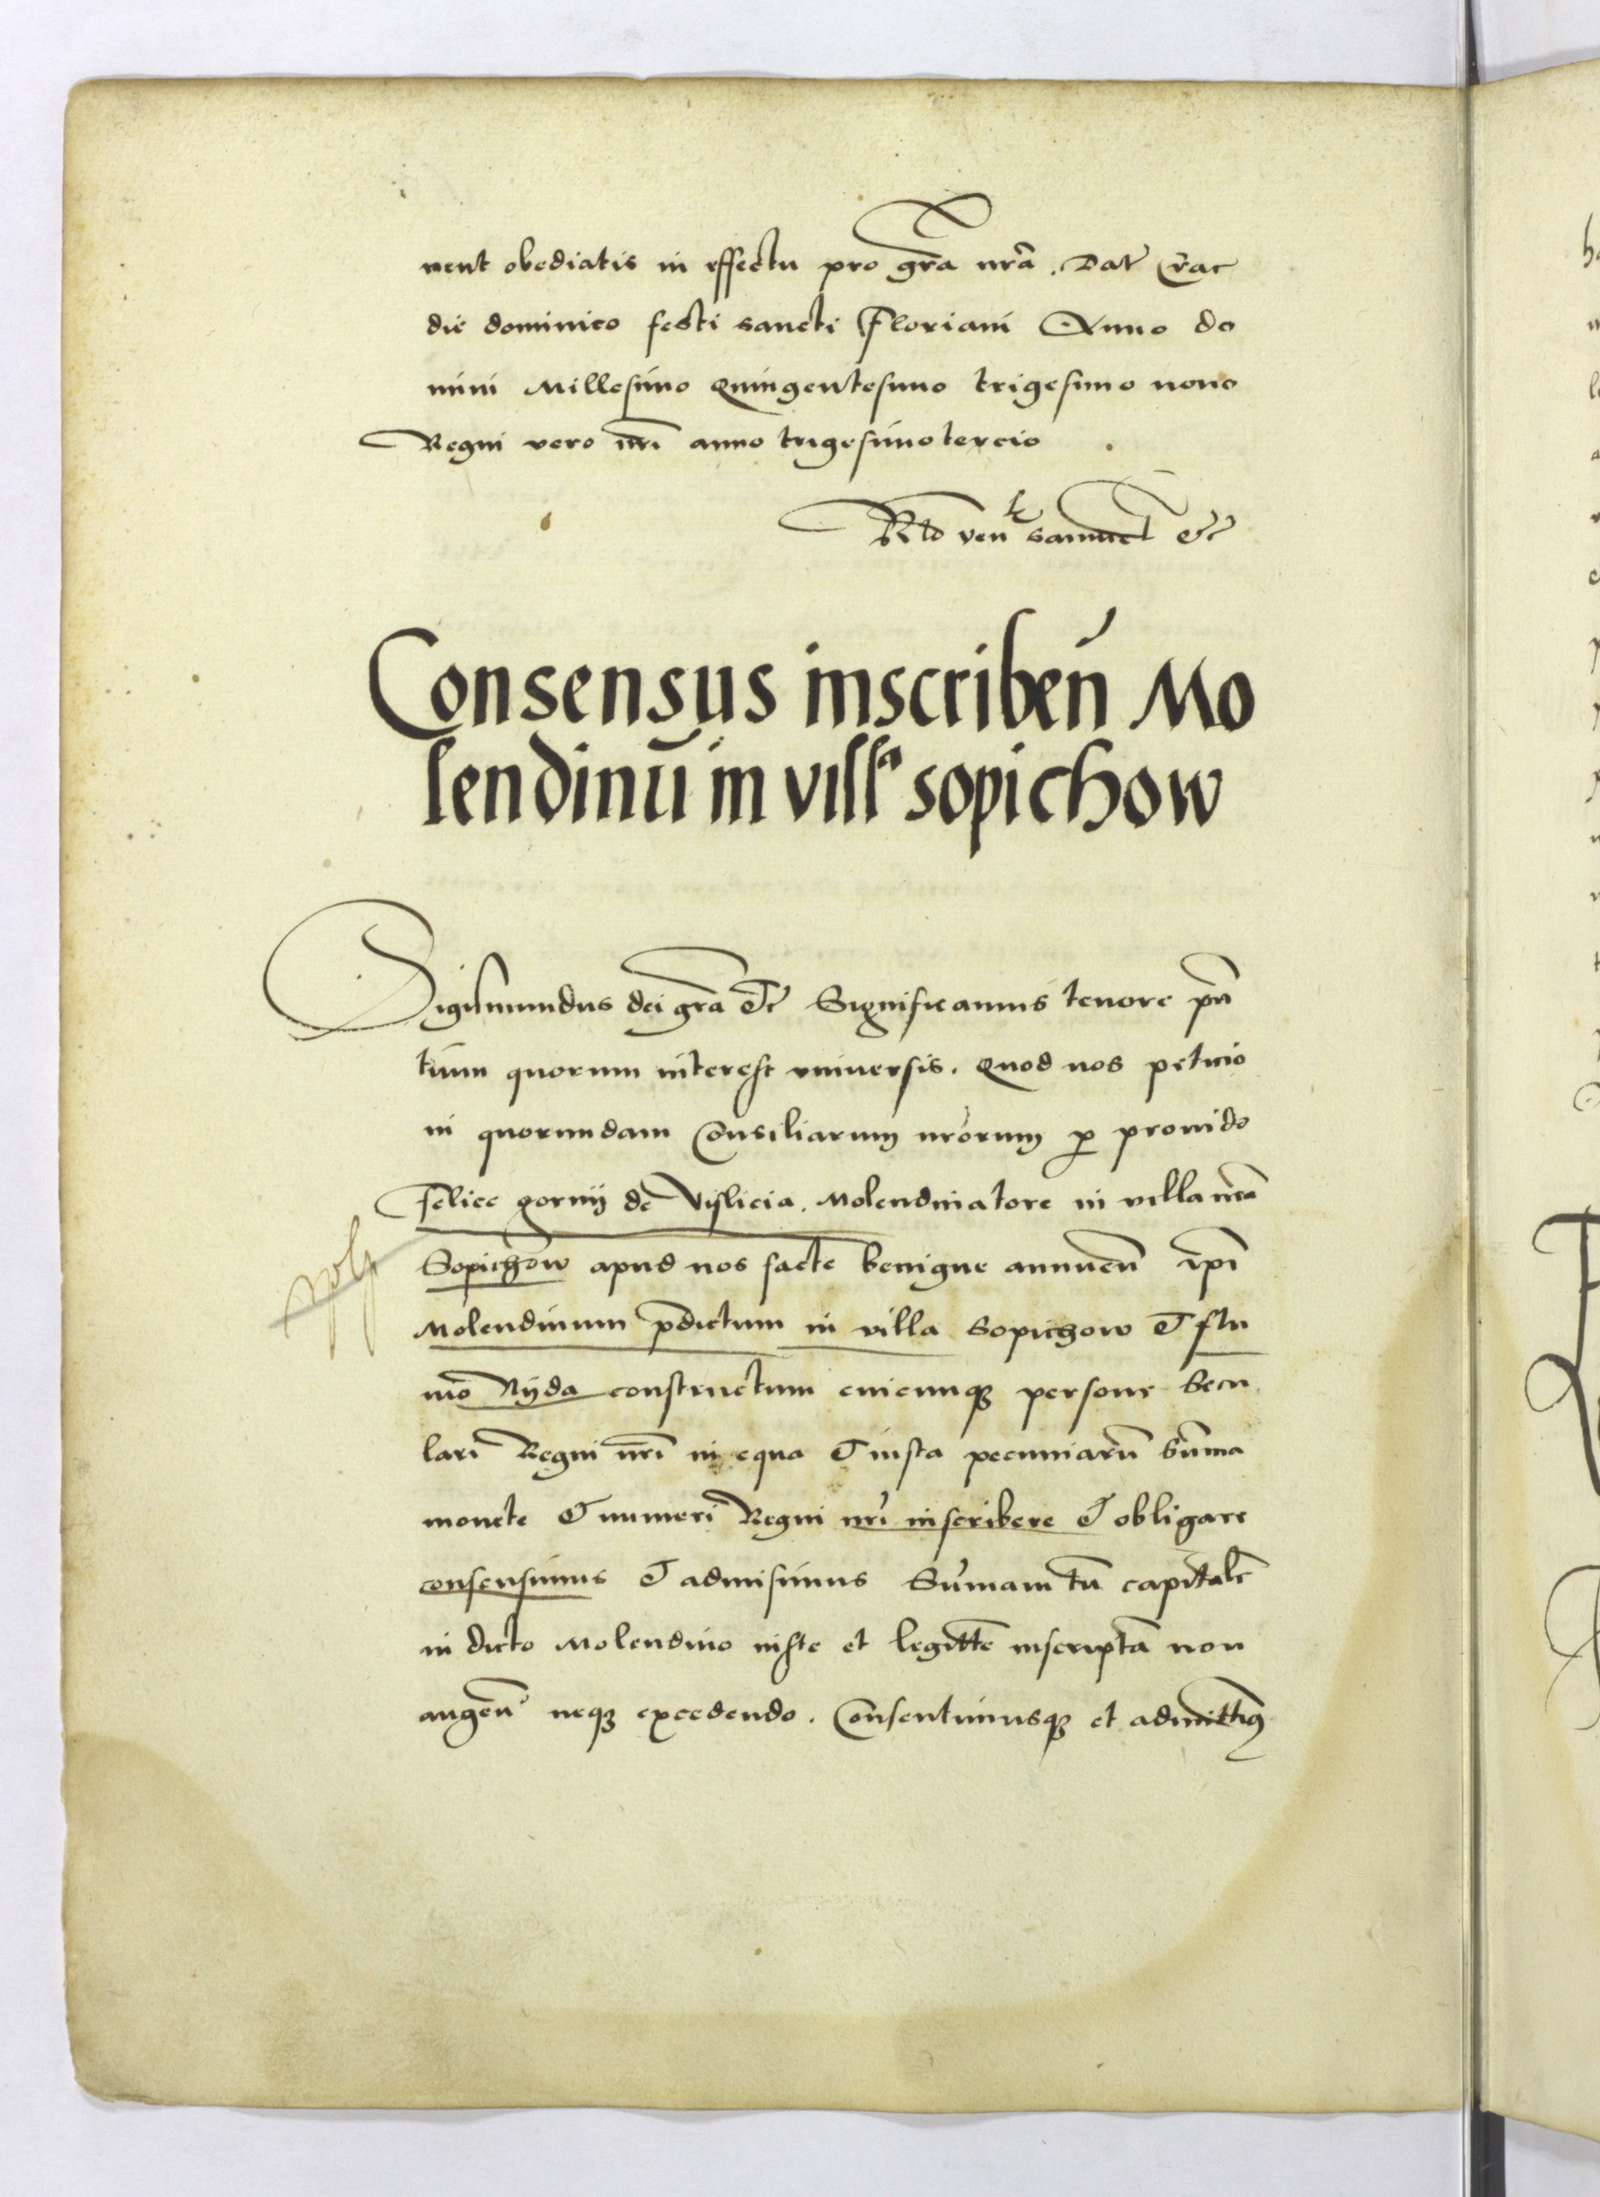 nent obediatis in effectu pro gra͞ nra͞. Dat͞ Crac͞
die dominico festi sancti Floriani Anno do
mini Millesimo Quingentesimo trigesimo nono
Regni vero nr͞i anno trigesimotercio
Rld ven͞ Samuel &c
Consensus inscriben͞ Mo
lendinu͞ in villa sopichow
Sigismundus dei gra͞ &c Significamus tenore pn͞
tium quorum interest vniuersis. Quod nos peticio
ni quorundam Consiliarum nr͞orum p prouido
Felice gornij de Vislicia. Molendinatore in villa nr͞a
Sopichow apud nos facte benigne annuen͞ ip͞i
Molendinum p͞dictum in villa Sopichow & flu
mo͞ Nyda constructum cuicunq persone secu
lari Regni nr͞i in equa & iusta pecuniaru͞ Su͞ma
monete & numeri Regni nr͞i inscribere & obligare
consensimus & admisimus Su͞mam tn͞ capitale͞
in dicto Molendino iuste et legitt͞e inscripta͞ non
augen͞ neq excedendo. Consentimusq et admittim9